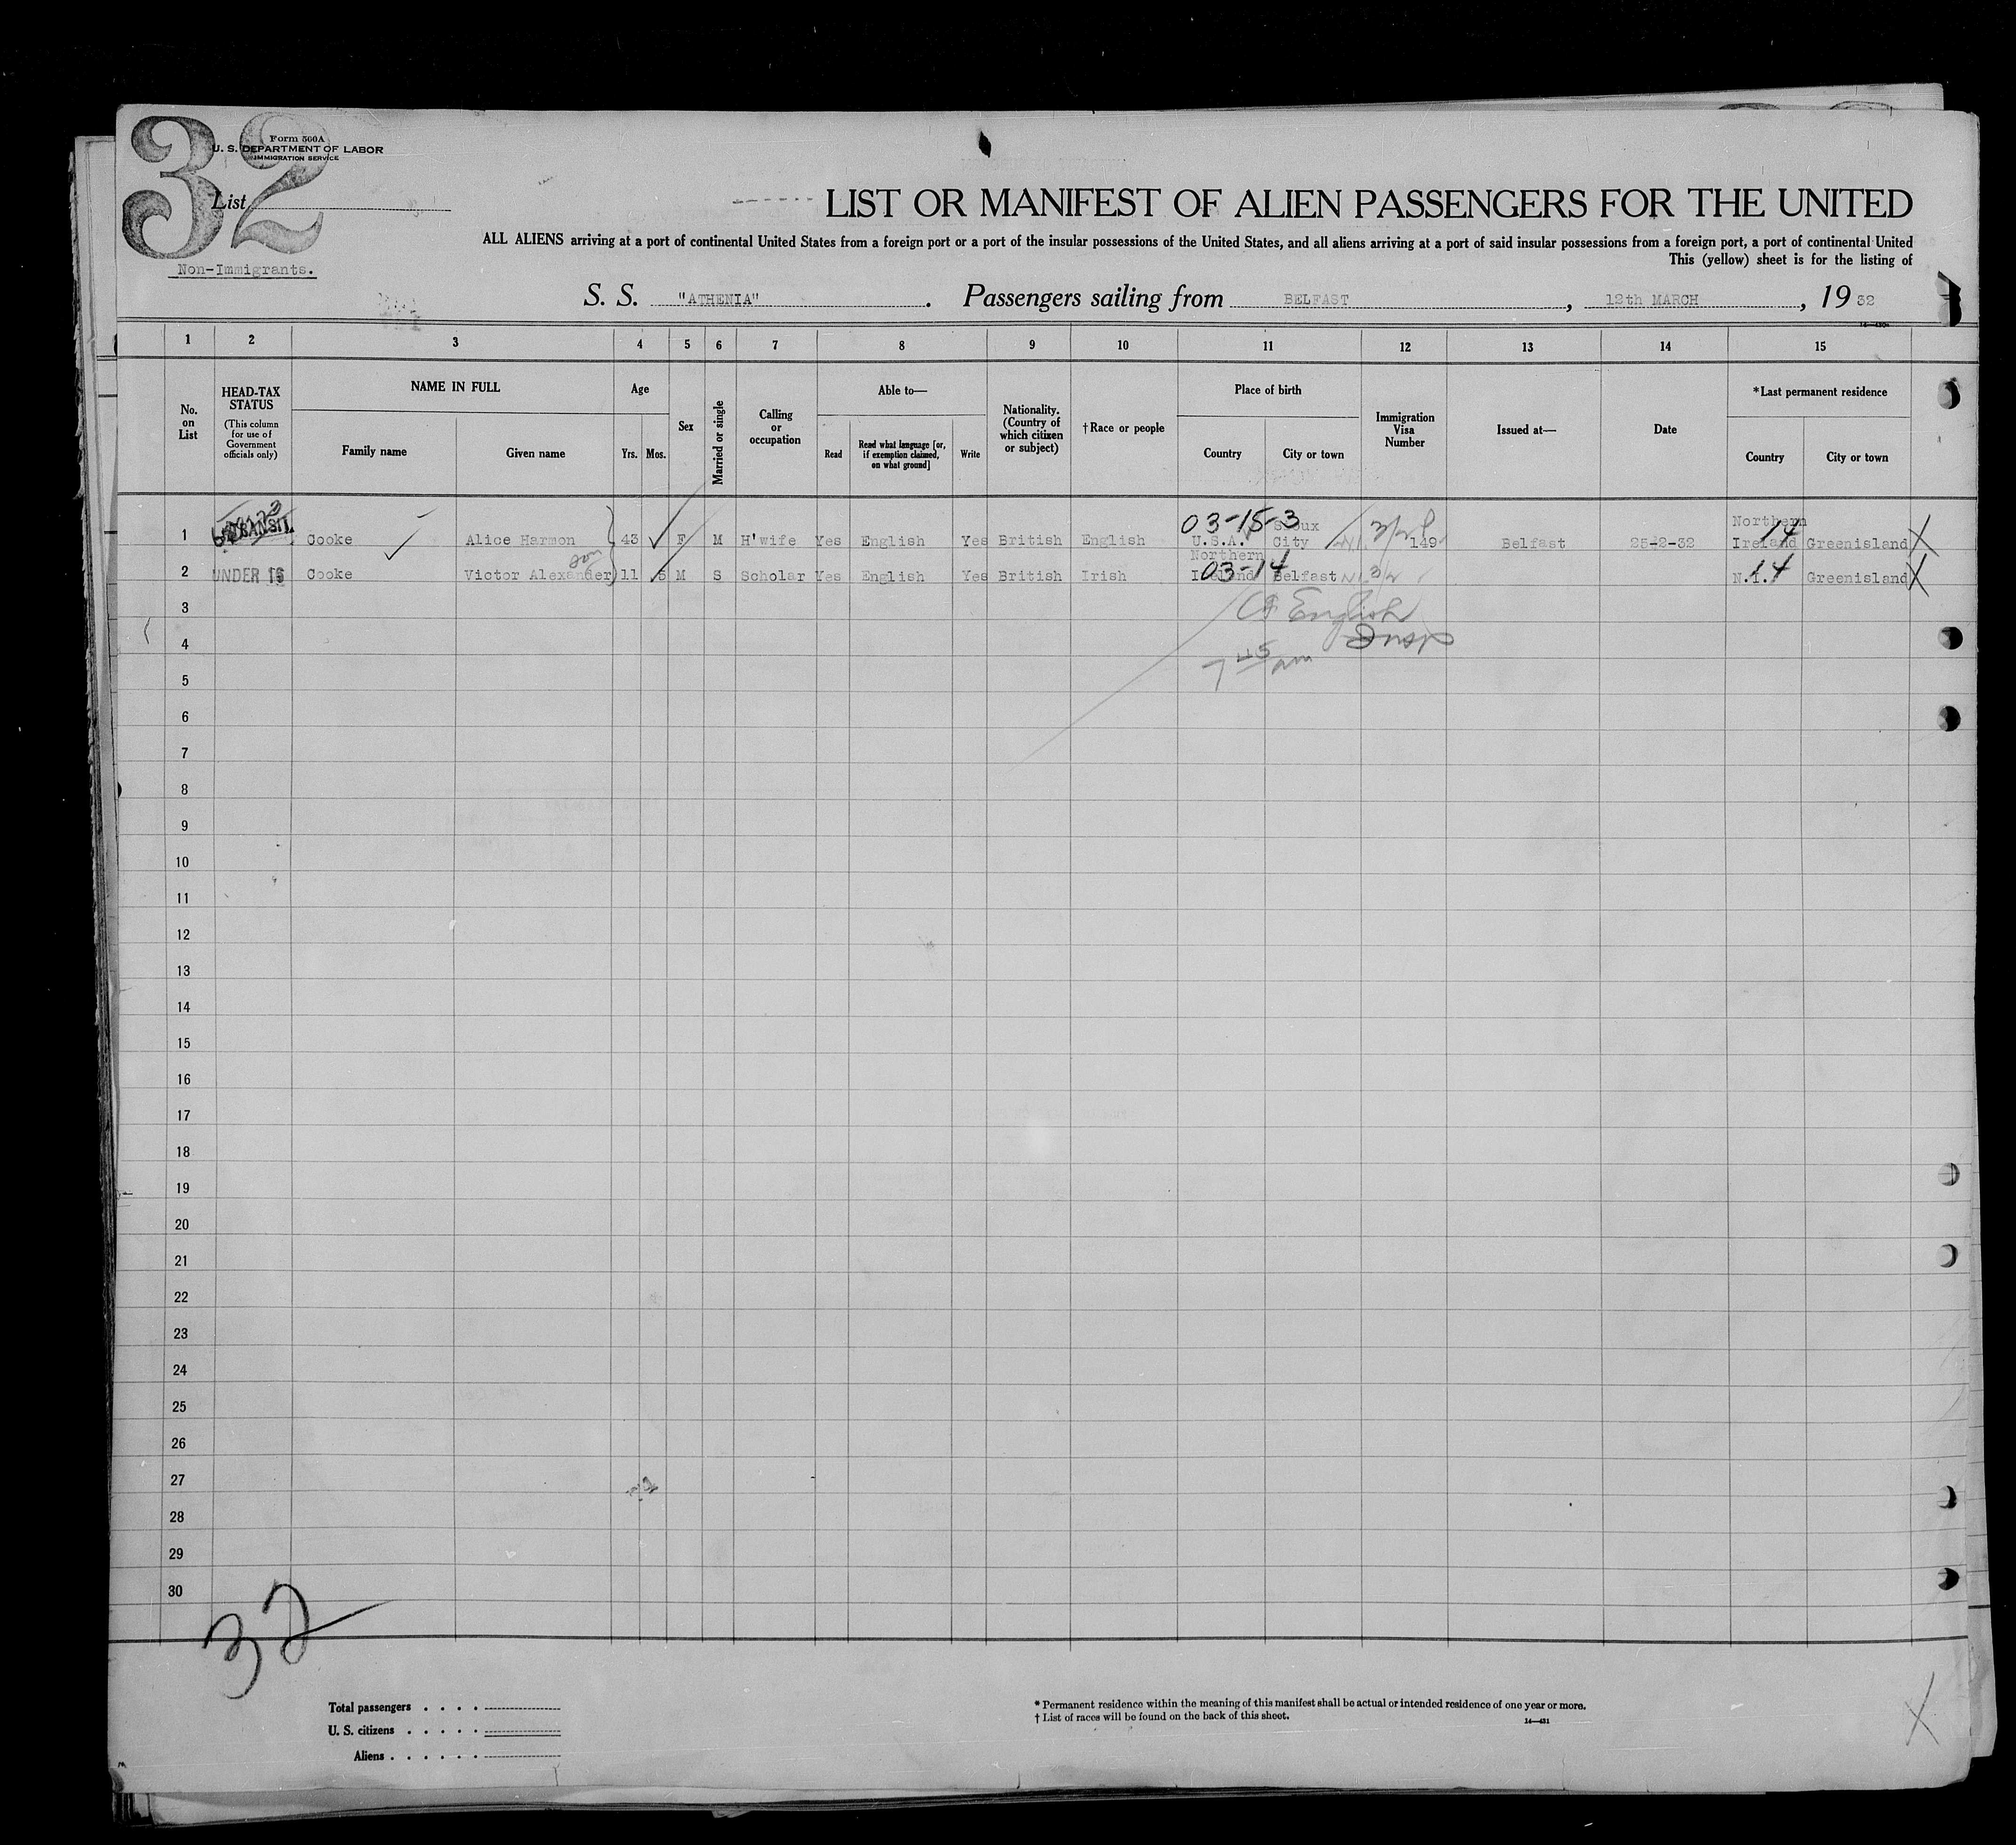 32
Form 500A
U. S. DEPARTMENT OF LABOR
IMMIGRATION SERVICE
List
Non-Immigrants.
LIST OR MANIFEST OF ALIEN PASSENGERS FOR THE UNITED
ALL ALIENS arriving at a port of continental United States from a foreign port or a port of the insular possessions of the United States, and all aliens arriving at a port of said insular possessions from a foreign port, a port of continental United
This (yellow) sheet is for the listing of
S. S. "ATHENIA" . Passengers sailing from BELFAST , 12th MARCH , 19 32
1 2 3 4 5 6 7 8 9 10 11 12 13 14 15
No. on List
HEAD-TAX STATUS
(This column for use of Government officials only)
NAME IN FULL
Family name Given name
Age
Yrs. Mos.
Sex
Married or single
Calling or occupation
Able to—
Read
Read what language [or, if exemption claimed, on what ground]
Write
Nationality. (Country of which citizen or subject)
†Race or people
Place of birth
Country City or town
Immigration Visa Number
Issued at—
Date
*Last permanent residence
Country City or town
1 TRANSIT Cooke Alice Harmon 43 F M H'wife Yes English Yes British English 03-15-3 U.S.A. Sioux City 149 Belfast 25-2-32 Northern Ireland 14 Greenisland X
2 UNDER 16 Cooke Victor Alexander son 11 5 M S Scholar Yes English Yes British Irish Northern Ireland 03-14 Belfast N.I. 14 Greenisland X
3
English
4
Insp
7 45 am
5
6
7
8
9
10
11
12
13
14
15
16
17
18
19
20
21
22
23
24
25
26
27
28
29
30
32
Total passengers . . . .
U. S. citizens . . . . .
Aliens . . . . . .
* Permanent residence within the meaning of this manifest shall be actual or intended residence of one year or more.
† List of races will be found on the back of this sheet.
14—431
X